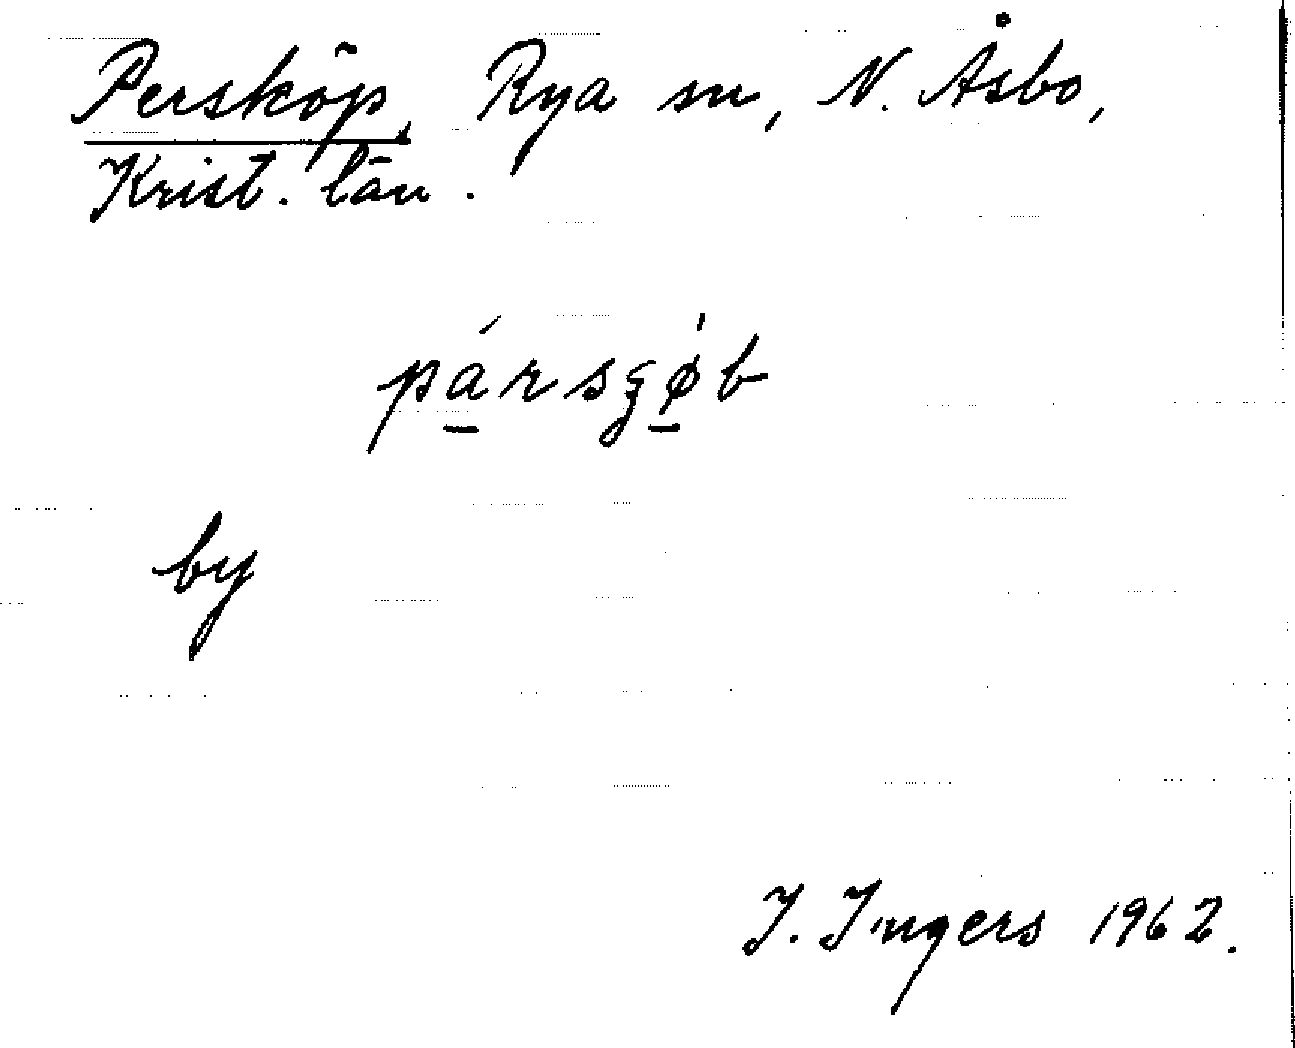 Persköp, Rya sn, N. Åsbo,
Krist. län.
by
I. Ingers 1962.